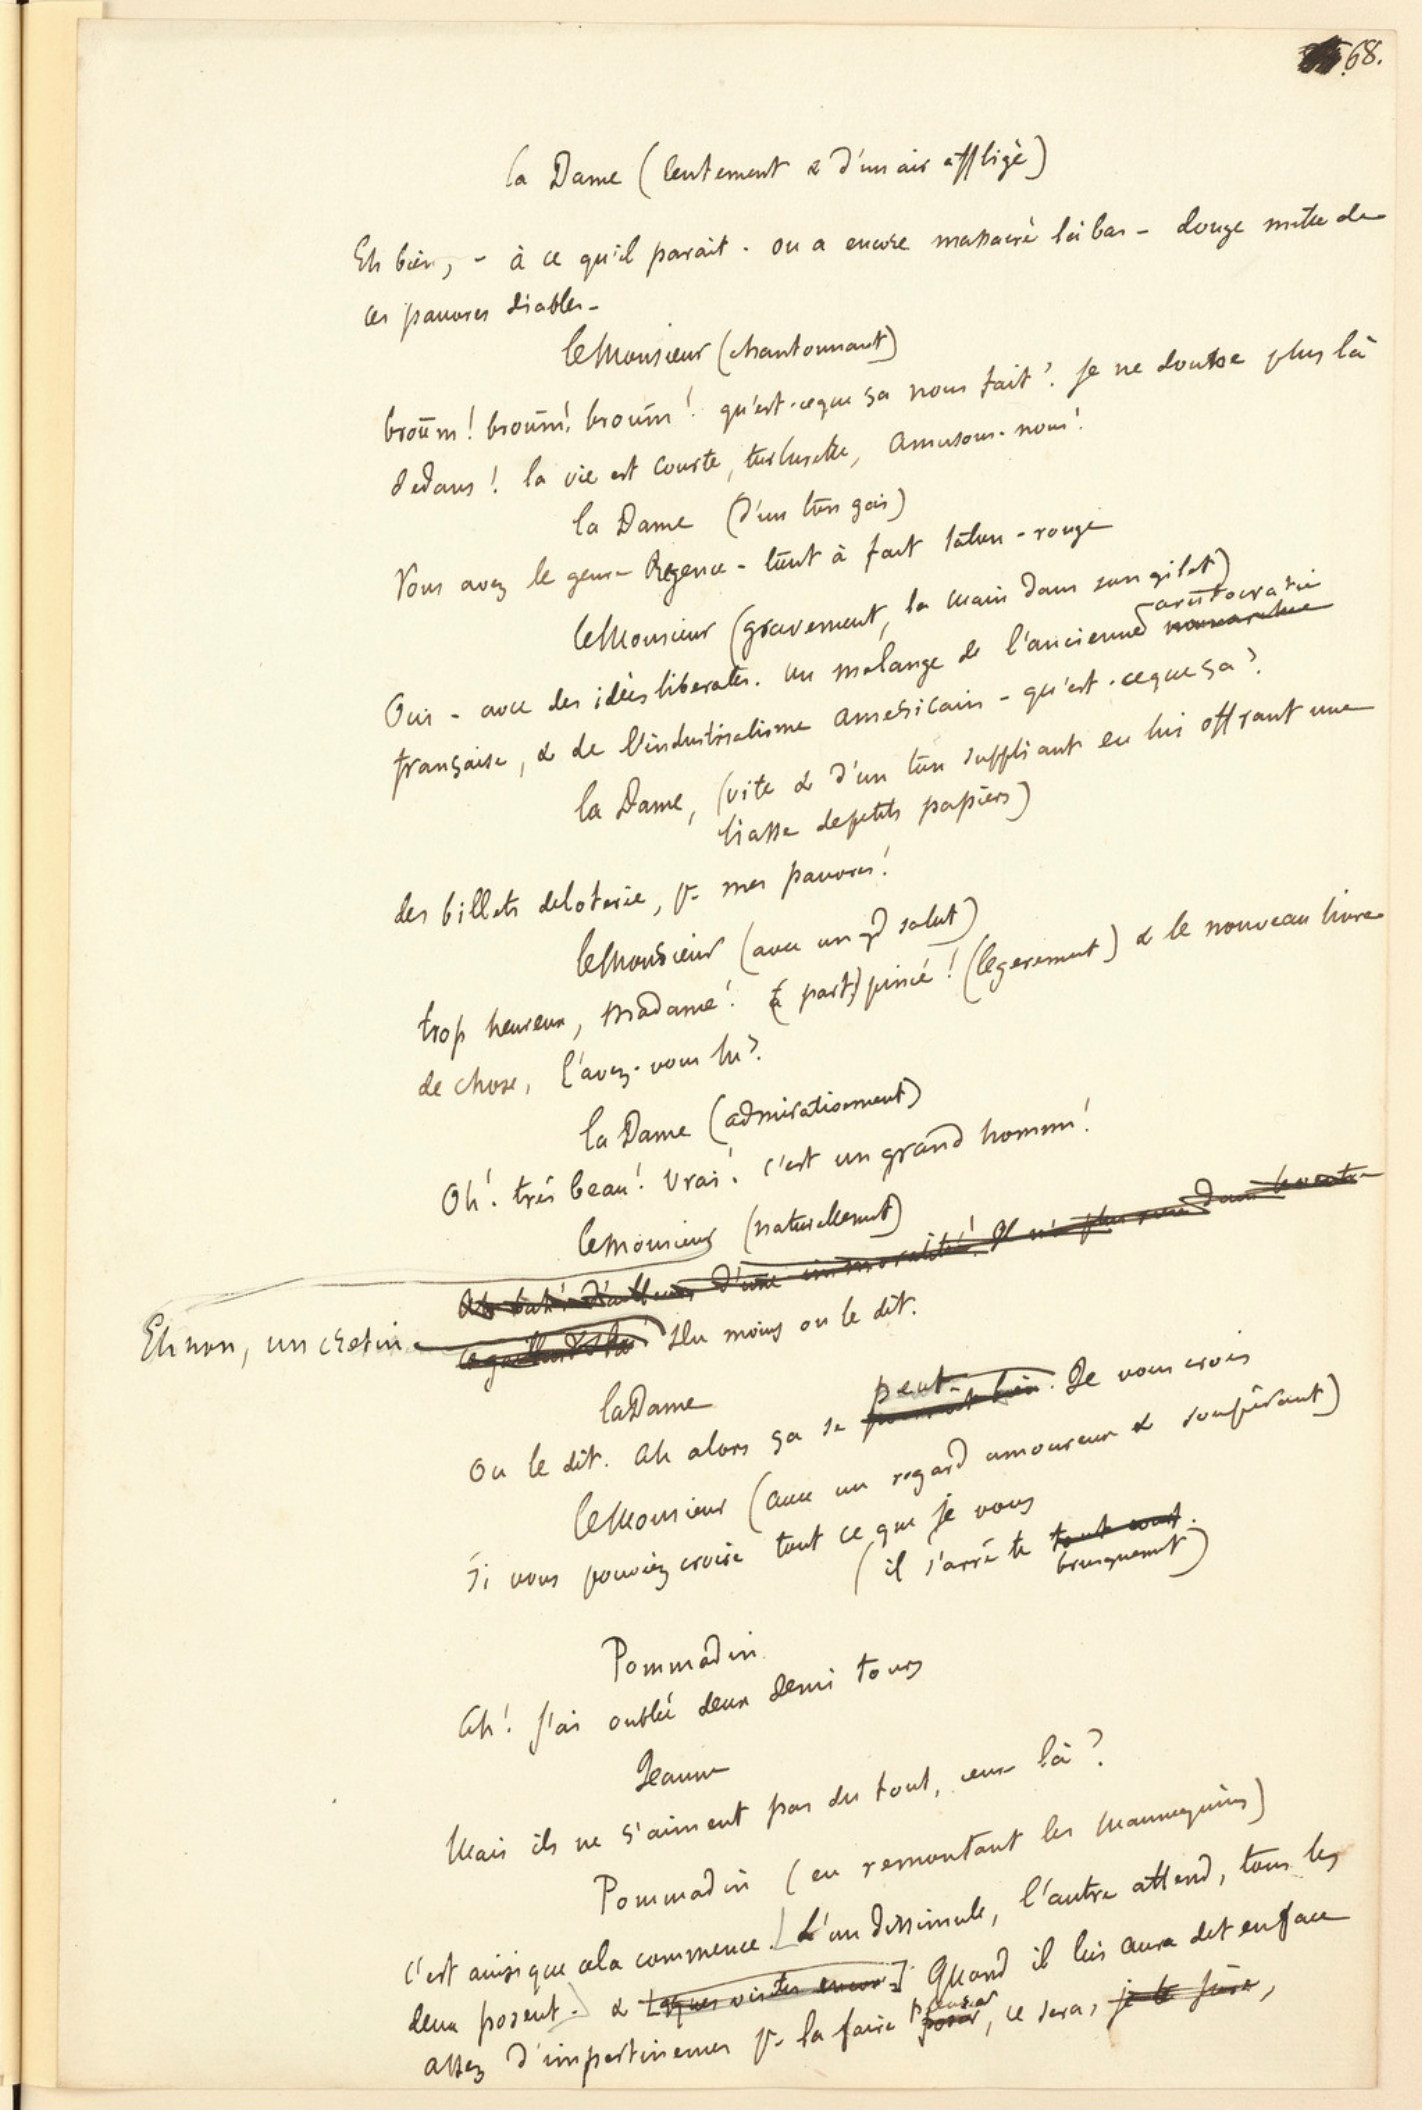 68.
la Dame (lentement & d'un air affligé)
Eh bien, - à ce qu'il parait - on a encore massacré là bas - douze mille de
ces pauvres diables -
le Monsieur (chantonnant)
broûm! broûm! broûm! qu'est-ceque ça nous fait? je ne donne plus là
dedans! la vie est courte, turlurette, amusons-nous!
la Dame (d'un ton gai)
Vous avez le genre Régence - tout à fait talon-rouge
le Monsieur (gravement, la main dans son gilet)
aristocratie
Oui - avec des idées liberales. un melange de l'ancienne monarchie
française, & de l'industrialisme americain - qu'est-ceque ça?
la Dame, (vite & d'un ton suppliant en lui offrant une
liasse de petits papiers)
des billets de loterie, pr mes pauvres!
le Monsieur (avec un gd salut)
trop heureux, Madame! (à part) pincé! (legerement) & le nouveau livre
de chose, l'avez-vous lu?
la Dame (admirationment)
Oh! très beau! Vrai! c'est un grand homme!
le Monsieur (naturellement)
d'ailleurs d'une immoralité! Il n'a plus rien dans le ventre
Eh non, un cretin - ce gaillard là! Du moins on le dit.
la Dame
peut
On le dit. Ah alors ça se pourrait bien. Je vous crois
le Monsieur (avec un regard amoureux & soupirant)
Si vous pouviez croire tout ce que je vous
(il s'arrête tout court.
brusquement)
Pommadin
Ah! j'ai oublié deux demi tours
Jeanne
Mais ils ne s'aiment pas du tout, ceux là?
Pommadin (en remontant les mannequins)
c'est ainsi que cela commence. [L'un dissimule, l'autre attend, tous les
deux posent.] & qques visites encor] Quand il lui aura dit en face
assez d'impertinences pr la faire poser, ce sera, je le jure,